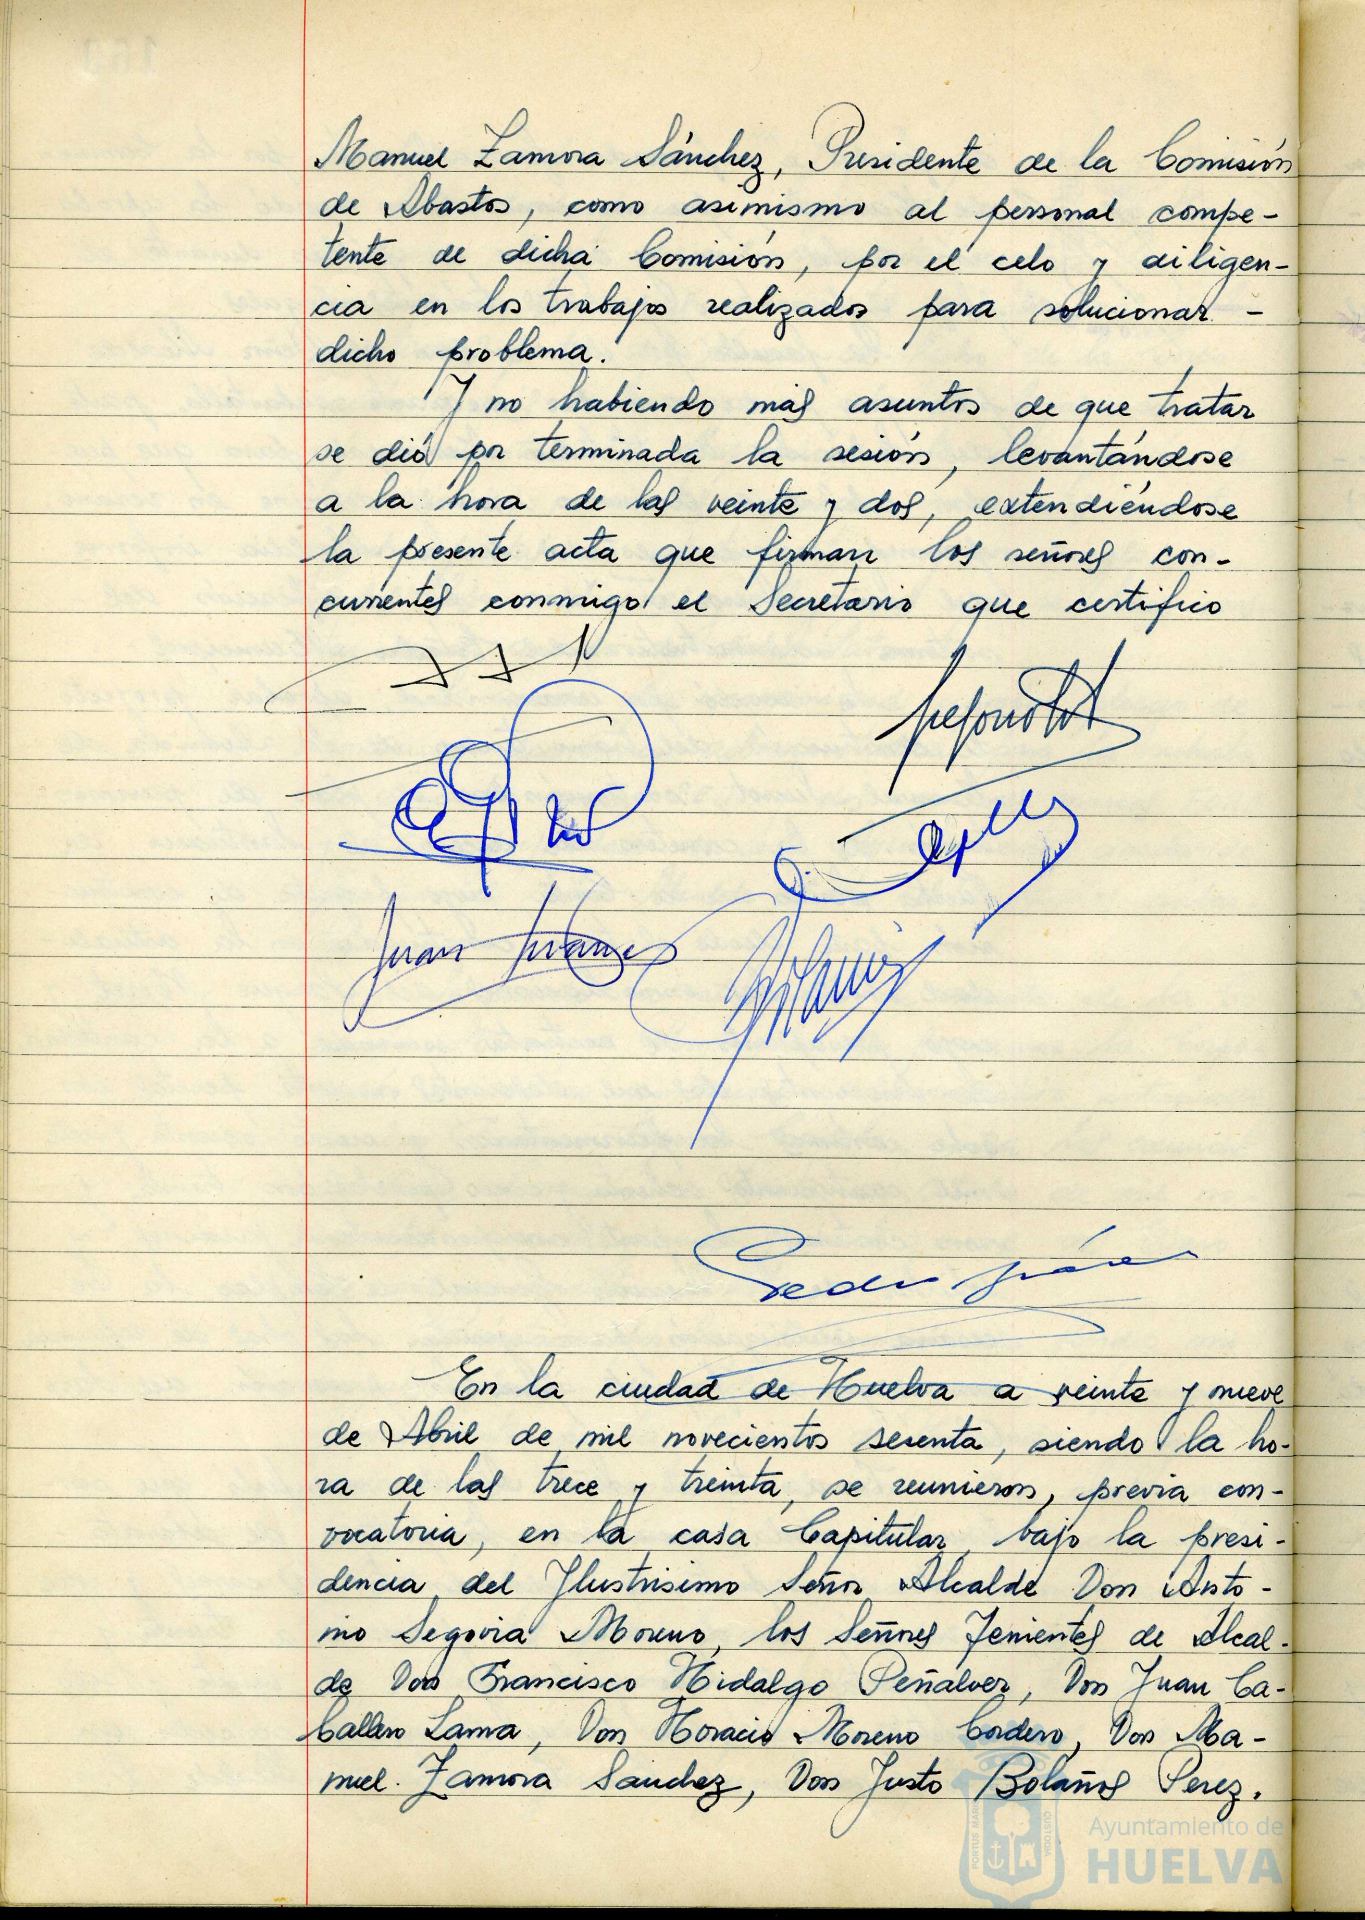 Manuel Zamora Sánchez, Presidente de la Comisión
de Abastos, como asimismo al personal compe-
tente de dicha Comisión, por el celo y diligen-
cia en los trabajos realizados para solucionar -
dicho problema.
Y no habiendo más asuntos de que tratar
se dió por terminada la sesión, levantándose
a la hora de las veinte y dos, extendiéndose
la presente acta que firman los señores con-
currentes conmigo el Secretario que certifico
Juan
Pedro
En la ciudad de Huelva a veinte y nueve
de Abril de mil novecientos sesenta, siendo la ho-
ra de las trece y treinta, se reunieron, previa con-
vocatoria, en la casa Capitular, bajo la presi-
dencia del Ilustrisimo Señor Alcalde Don Anto-
nio Segovia Moreno, los Señores Tenientes de Alcal-
de Don Francisco Hidalgo Peñalver, Don Juan Ca-
ballero Lama, Don Horacio Moreno Cordero, Don Ma-
nuel Zamora Sanchez, Don Justo Bolaños Perez.
PORTUS MARIS
CUSTODIA
Ayuntamiento de
HUELVA